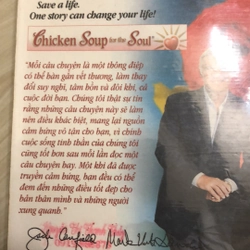 Save a life.
One story can change your life!
Chicken Soup for the Soul
"Mỗi câu chuyện là một thông điệp
có thể hàn gắn vết thương, làm thay
đổi suy nghĩ, tâm hồn và đôi khi, cả
cuộc đời bạn. Chúng tôi thật sự tin
rằng những câu chuyện này sẽ làm
nên điều khác biệt, mang lại nguồn
cảm hứng vô tận cho bạn, vì chính
cuộc sống tinh thần của chúng tôi
cũng tốt hơn sau mỗi lần đọc một
câu chuyện hay. Một khi đã được
truyền cảm hứng, bạn đều có thể
đem đến những điều tốt đẹp cho
bản thân mình và những người
xung quanh."
Jack Canfield